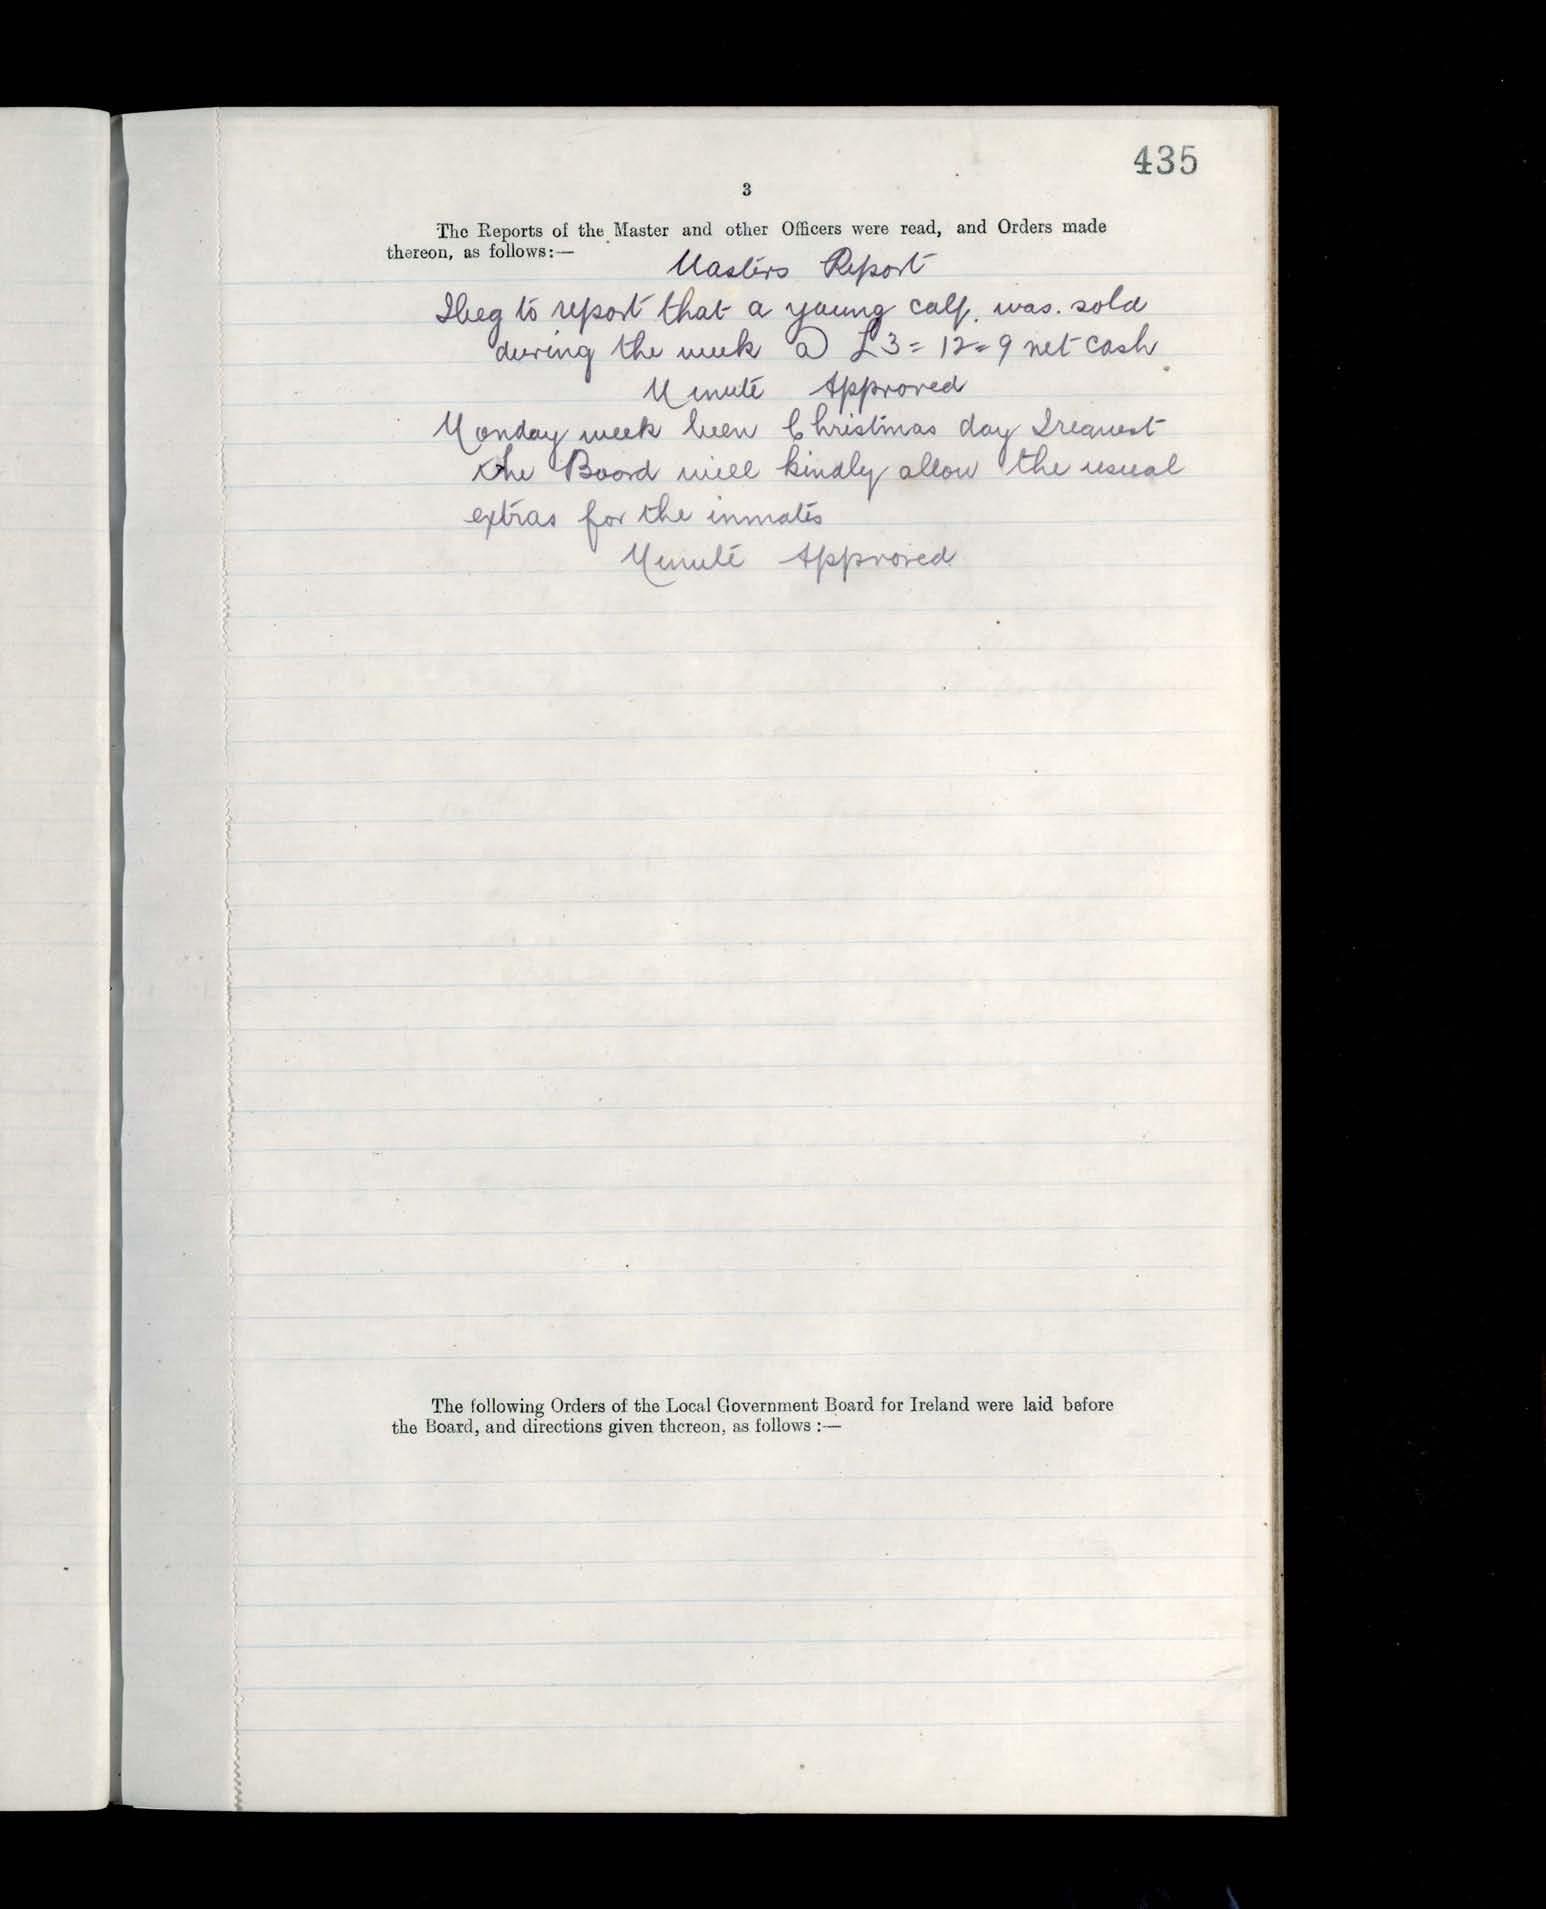 435
3
The Reports of the Master and other Officers were read, and Orders made
thereon, as follows:—
Masters Report
I beg to report that a young calf. was. sold
during the week @ £3=12=9 net cash
Minute Approved
Monday week been Christmas day I request
the Board will kindly allow the usual
extras for the inmates
Minute Approved
The following Orders of the Local Government Board for Ireland were laid before
the Board, and directions given thereon, as follows :—